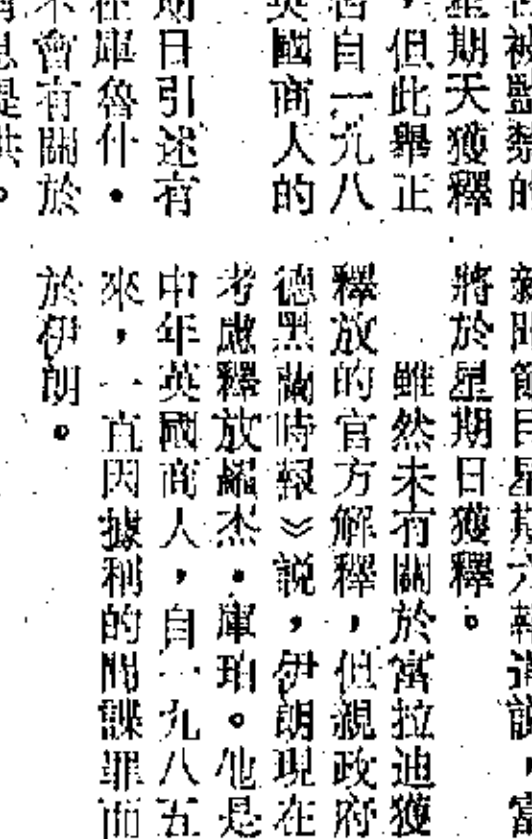 被監禁的
星期天獲釋
，但此舉正
自一九八
英國商人的
期日引述有
在庫魯什·
不會有關於
消息提供。
新聞節目星期六報道說，富
將於星期日獲釋。
雖然未有關於富拉迪獲
釋放的官方解釋，但親政府
德黑蘭時報》說，伊朗現在
考慮釋放羅杰·庫珀。他是
中年英國商人，自一九八五
來，一直因據稱的間諜罪而
於伊朗。